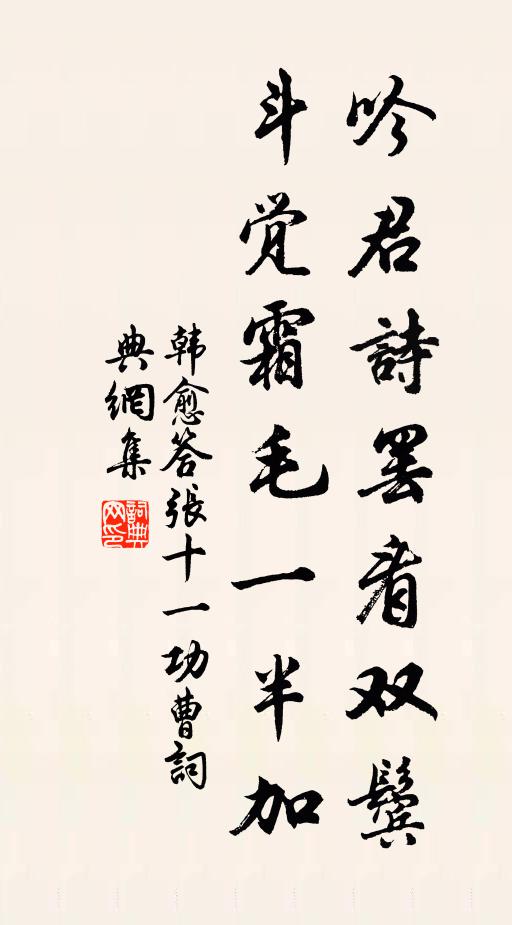 吟君詩罢看双鬓
斗觉霜毛一半加
韩愈答張十一功曹詞
典網集
詞典网印